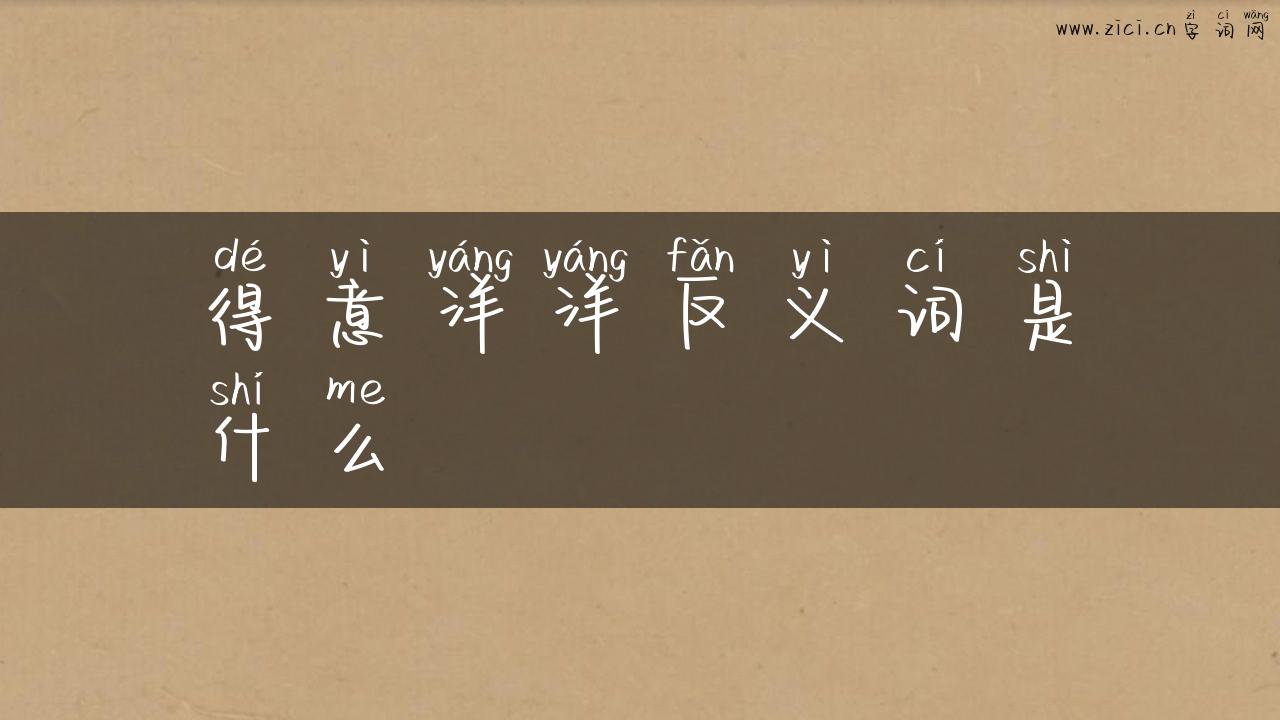 zì cí wǎng
www.zici.cn 字 词 网
dé yì yáng yáng fǎn yì cí shì
得 意 洋 洋 反 义 词 是
shí me
什 么